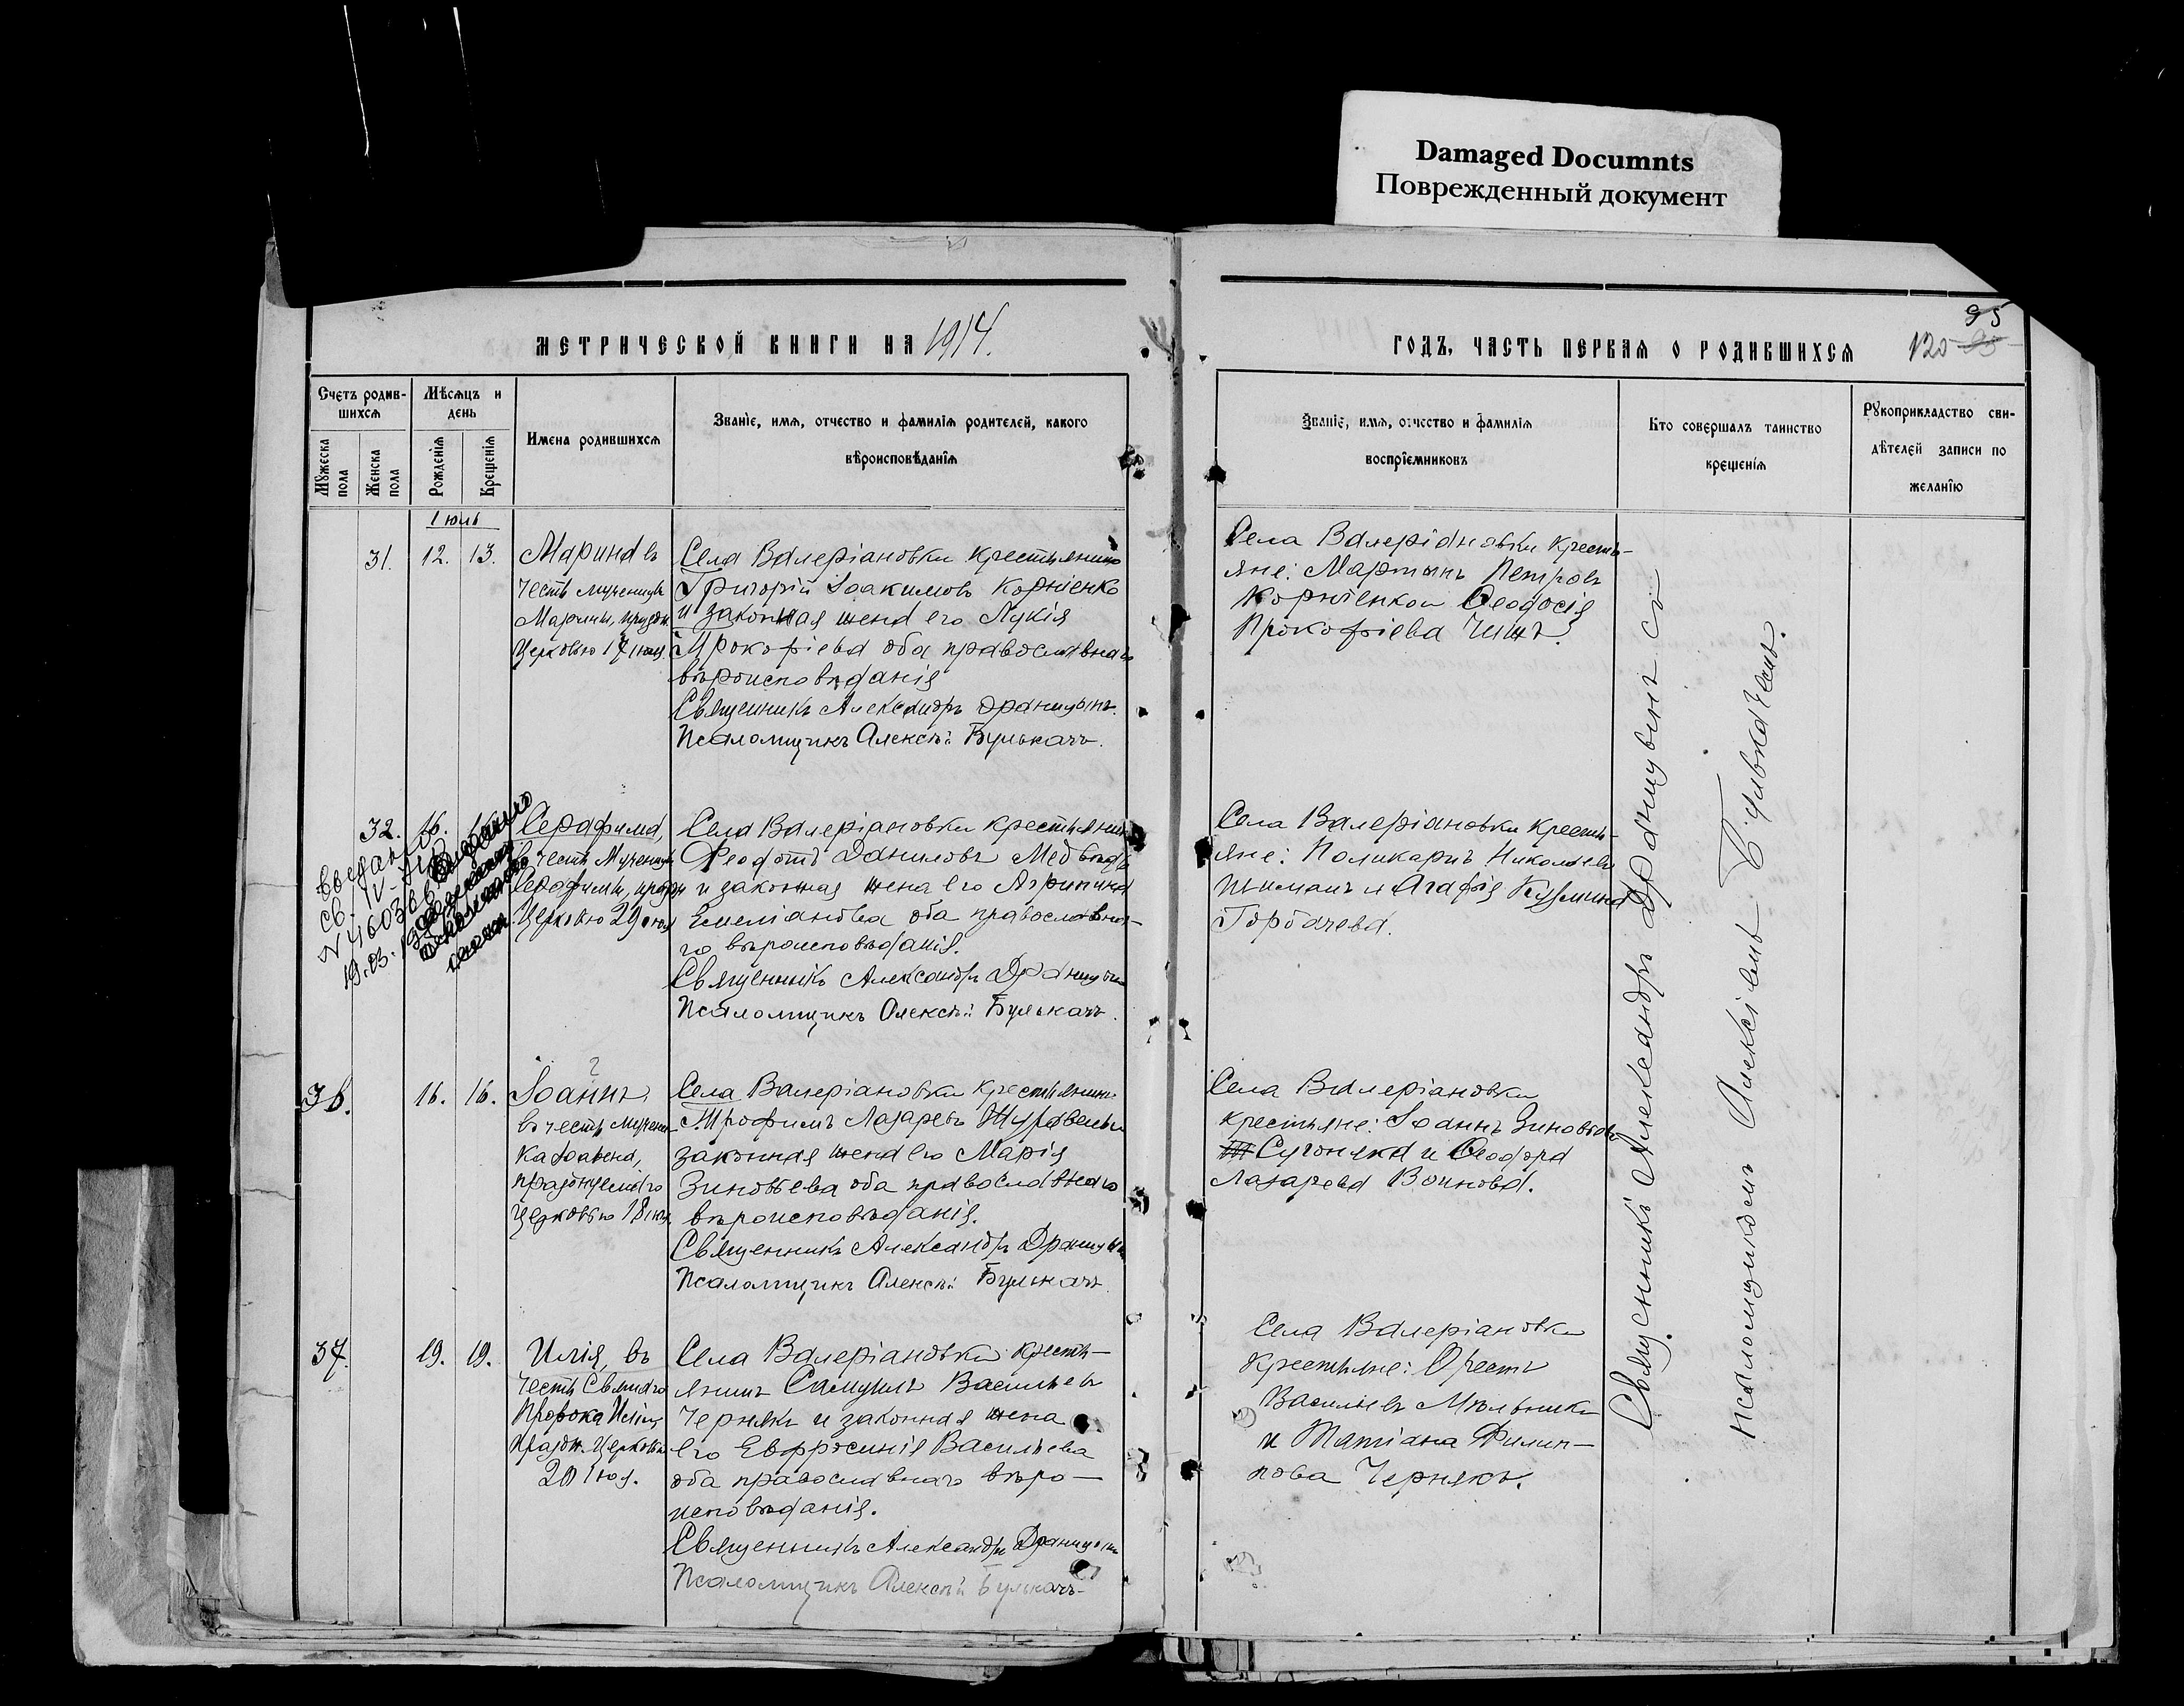 Damaged Documnts
Поврежденный документ
МЕТРИЧЕСКОЙ КНИГИ НА 1914.
ГОДЪ, ЧАСТЬ ПЕРВАЯ О РОДИВШИХСЯ
95
120
Счетъ родив-
шихся
Мѣсяцъ и
день
Мужеска пола
Женска пола
Рожденія
Крещенія
Имена родившихся
Званіе, имя, отчество и фамилія родителей, какого
вѣроисповѣданія
Званіе, имя, отчество и фамилія
воспріемниковъ
Кто совершалъ таинство
крещенія
Рукоприкладство сви-
дѣтелей записи по
желанію
Іюль
31. 12. 13.
Марина въ
честь мученицы
Марины, празdн.
Церковью 17 іюля
Села Валеріановки крестьянинъ
Григорій Іоакимовъ Корніенко
и законная жена его Лукія
Прокофіева оба православнаго
вѣроисповѣданія
Священникъ Александръ Драницынъ.
Псаломщикъ Алексѣй Булькачъ.
Села Валеріановки кресть-
яне: Мартынъ Петровъ
Корніенко и Ѳеодосія
Прокофіева
32. 16. 16.
Серафима,
въ честь Мученицы
Серафимы, праздн
Церковью 29 іюля
Села Валеріановки крестьянинъ
Ѳеодотъ Даниловъ Медвѣдь
и законная жена его Агрипина
Емеліанова оба православна-
го вѣроисповѣданія.
Священникъ Александръ Драницынъ
Псаломщикъ Алексѣй Булькачъ.
Села Валеріановки кресть-
яне: Поликарпъ Николаевъ
и Агафія Кузмина
Горбачева.
36. 16. 16.
Іоаннъ,
въ честь мучени-
ка
празднуемаго
церковью 18 іюл
Села Валеріановки крестьянинъ
Трофимъ Лазаревъ Журавель и
законная жена его Марія
Зиновьева оба православнаго
вѣроисповѣданія.
Священникъ Александръ Драницынъ
Псаломщикъ Алексѣй Булькачъ.
Села Валеріановки
крестьяне: Іоаннъ Зиновьевъ
Сугоняка и Ѳеодора
Лазарева Воинова.
37. 19. 19.
Илія, въ
честь Святаго
Пророка Иліи,
праздн. Церковью
20 Іюл.
Села Валеріановки кресть-
янинъ Самуилъ Васильевъ
Чернякъ и законная жена
его Евфросинія Васильева
оба православнаго вѣро-
исповѣданія.
Священникъ Александръ Драницынъ
Псаломщикъ Алексѣй Булькачъ
Села Валеріановки
крестьяне: Орестъ
Васильевъ Мельникъ
и Татіана Филип-
пова Чернякъ.
Священникъ Александръ Драницынъ съ
псаломщикомъ Алексіемъ Булькачемъ.